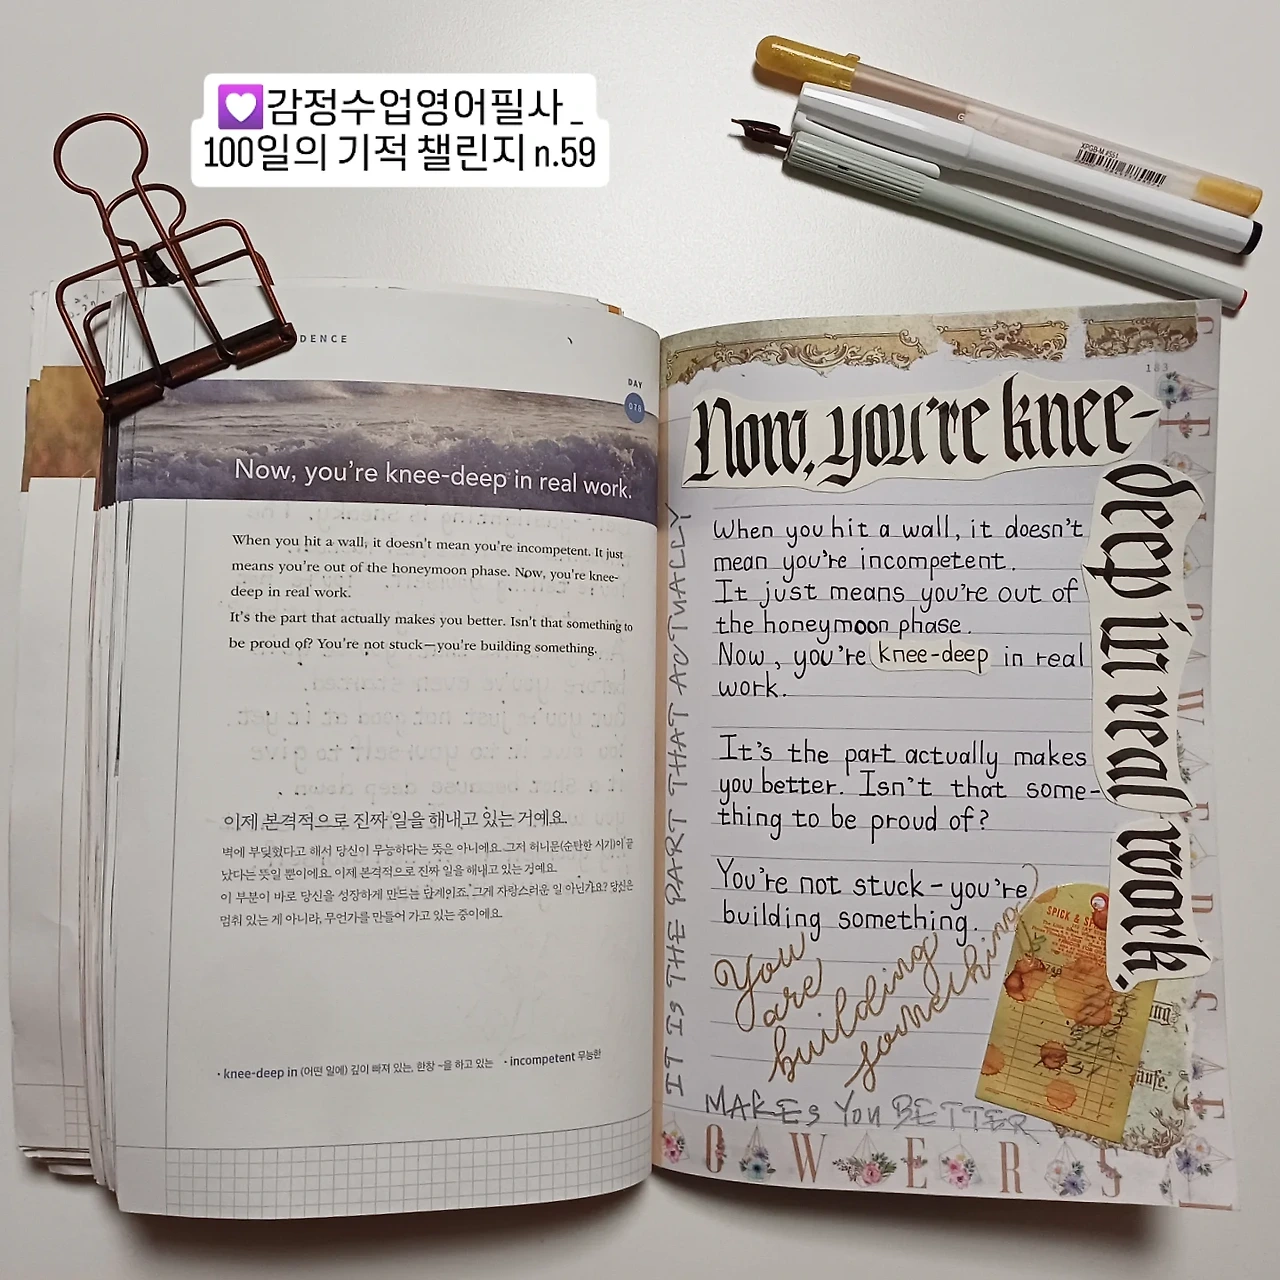 💜감정수업영어필사_
100일의 기적 챌린지 n.59
XPGB-M #551
DENCE
DAY
078
Now, you're knee-deep in real work.
When you hit a wall, it doesn't mean you're incompetent. It just
means you're out of the honeymoon phase. Now, you're knee-
deep in real work.
It's the part that actually makes you better. Isn't that something to
be proud of? You're not stuck—you're building something.
이제 본격적으로 진짜 일을 해내고 있는 거예요.
벽에 부딪혔다고 해서 당신이 무능하다는 뜻은 아니에요. 그저 허니문(순탄한 시기)이 끝
났다는 뜻일 뿐이에요. 이제 본격적으로 진짜 일을 해내고 있는 거예요.
이 부분이 바로 당신을 성장하게 만드는 단계이죠. 그게 자랑스러운 일 아닌가요? 당신은
멈춰 있는 게 아니라, 무언가를 만들어 가고 있는 중이에요.
• knee-deep in (어떤 일에) 깊이 빠져 있는, 한창 ~을 하고 있는 • incompetent 무능한
183
Now, you're knee-
deep in real work.
When you hit a wall, it doesn't
mean you're incompetent.
It just means you're out of
the honeymoon phase.
Now, you're knee-deep in real
work.
It's the part actually makes
you better. Isn't that some-
thing to be proud of?
You're not stuck – you're
building something.
You
are
building
something
IT IS THE PART THAT ACTUALLY
MAKES YOU BETTER
SPICK &
OWERS